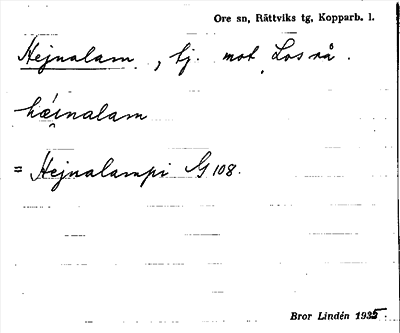 Ore sn, Rättviks tg, Kopparb. l.
Hejnalam, tj. mot Los rå.
hǽinalam
= Hejnalampi G 108.
Bror Lindén 1935.